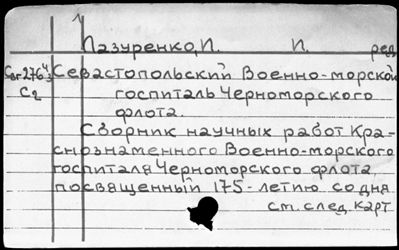 Лазуренко, П. П. ред.
Севастопольский Военно-морской
госпиталь Черноморского
флота.
Сборник научных работ Кра-
снознаменного Военно-морского
госпиталя Черноморского флота,
посвященный 175-летию со дня
см. след. карт